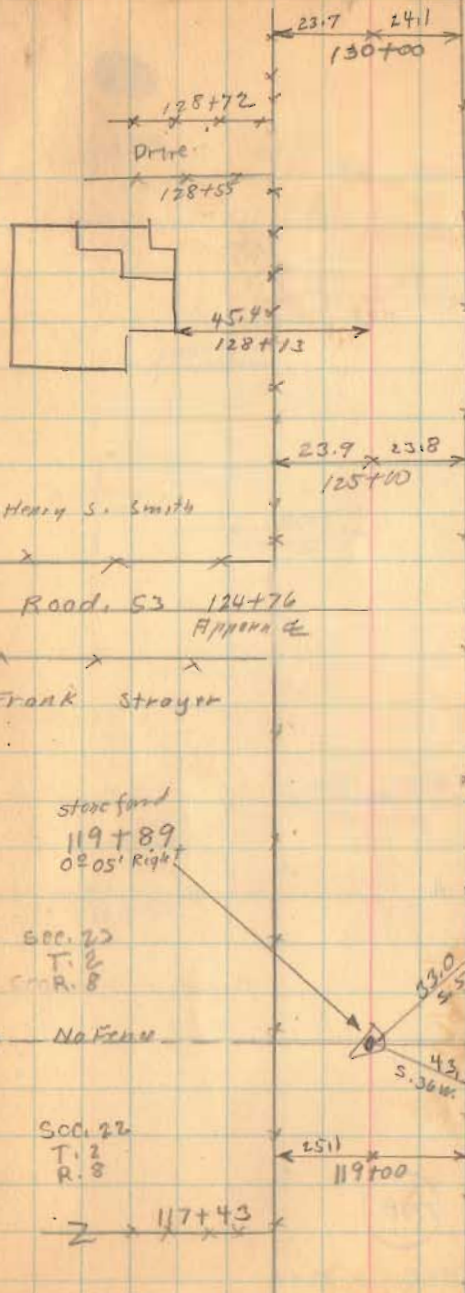 23.7 24.1
130+00
128+72
Drive
128+55
45.4
128+13
23.9 23.8
125+00
Henry S. Smith
Road. S3 124+76
Apparn ℄
Frank Strayer
stone found
119+89
0º05' Right
Sec. 23
T. 2
R. 8
33.0
43.
S. 36 W.
No Fence
Sec. 22
T. 2
R. 8
25.1
119+00
117+43